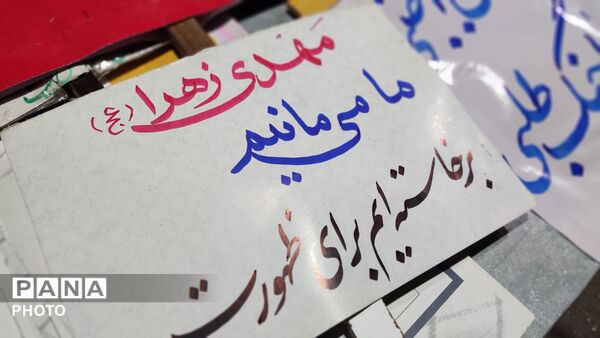 مهدی زهرا (عج)
ما می مانیم
برخاسته ایم برای ظهورت
طلبی
PANA
PHOTO